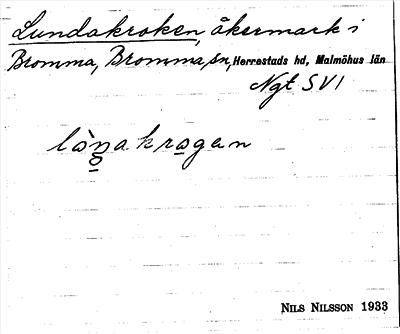 Lundakroken, åkermark i
Bromma, Bromma sn, Herrestads hd, Malmöhus län
Ngt SV I
Nils Nilsson 1933